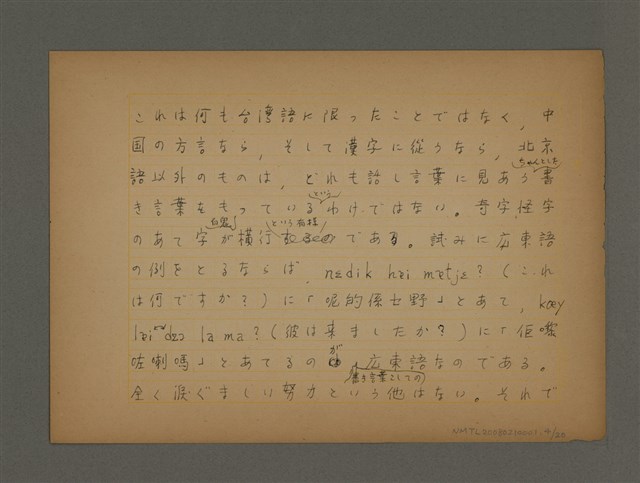 これは何も台湾語に限ったことではなく、中
国の方言なら、そして漢字に従うなら、北京
語以外のものは、どれも話し言葉に見あうちゃんとした書
き言葉をもっているというわけではない。奇字、怪字
のあて字が横行という有様である。試みに広東語
の例をとるならば、nɛdik hɐi mɐtjɛ?(これ
は何ですか?)に「呢的係乜野」とあて、kœy
lɐi dzɔ la ma?(彼は来ましたか?)に「佢嚟
咗喇嗎」とあてるのが、書き言葉としての広東語なのである。
全く涙ぐましい努力という他はない。それで
NMTL20090210001.4/20